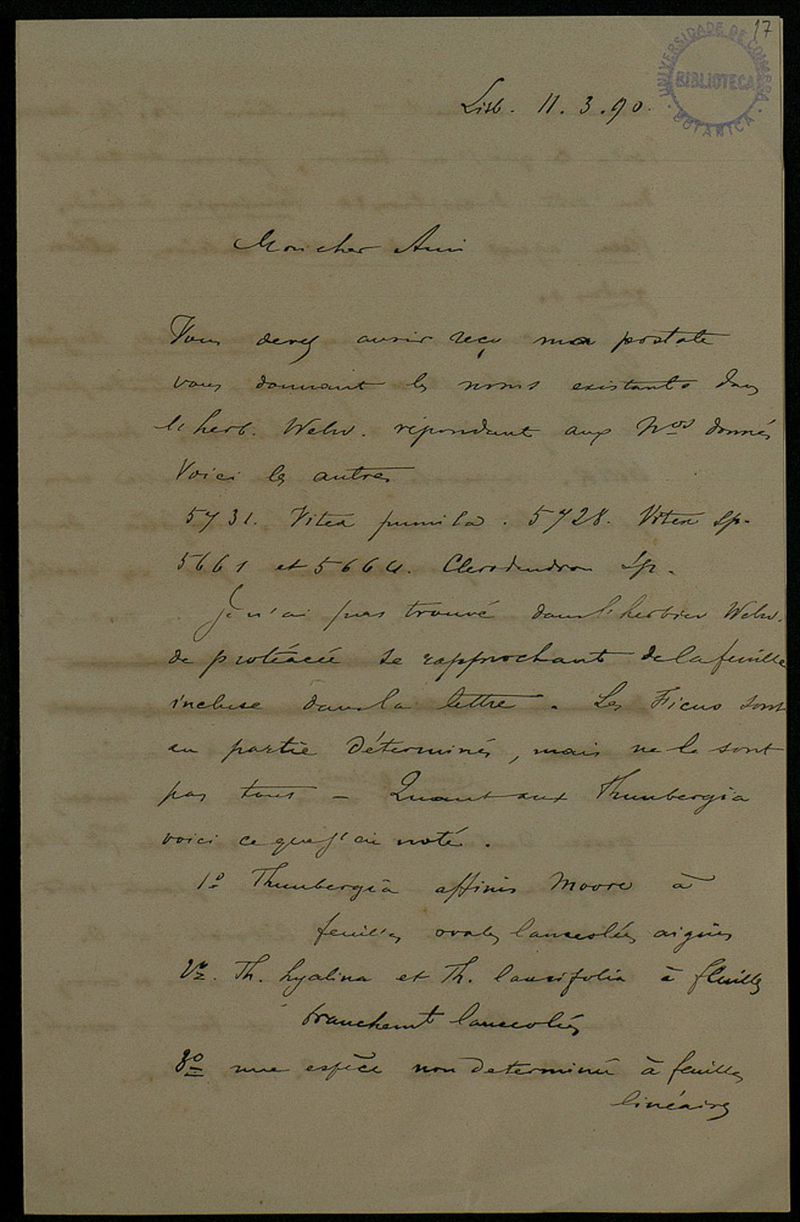 17
UNIVERSIDADE DE COIMBRA
BIBLIOTECA
BOTANICA
Lisb. 11.3.90.
Mon cher Ami
Vous devez avoir reçu ma postale
vous donnant les noms existants dans
l'herb. Welw. répondant aux Nos donnés
Voici les autres
5731. Vitex pumila. 5728. Vitex sp.
5661 et 5664. Clerodendron sp.
Je n'ai pas trouvé dans l'herbier Welw.
de protéacée se rapprochant de la feuille
incluse dans la lettre. Les Ficus sont
en partie déterminés, mais ne le sont
pas tous – Quant aux Thunbergia
voici ce que j'ai noté.
1º Thunbergia affinis Moore à
feuilles ovales lanceolées aigües
Th. hyalina et Th. lancifolia à feuilles
franchemt lanceolées
3º une espèce non determinée à feuilles
linéaires